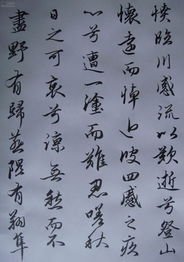 憤臨川感流以歎逝兮登山
懷遠而悼近彼四感之疚
心兮遭一塗而難忍嗟秋
日之可哀兮諒無愁而不
盡野有歸燕隰有翔隼